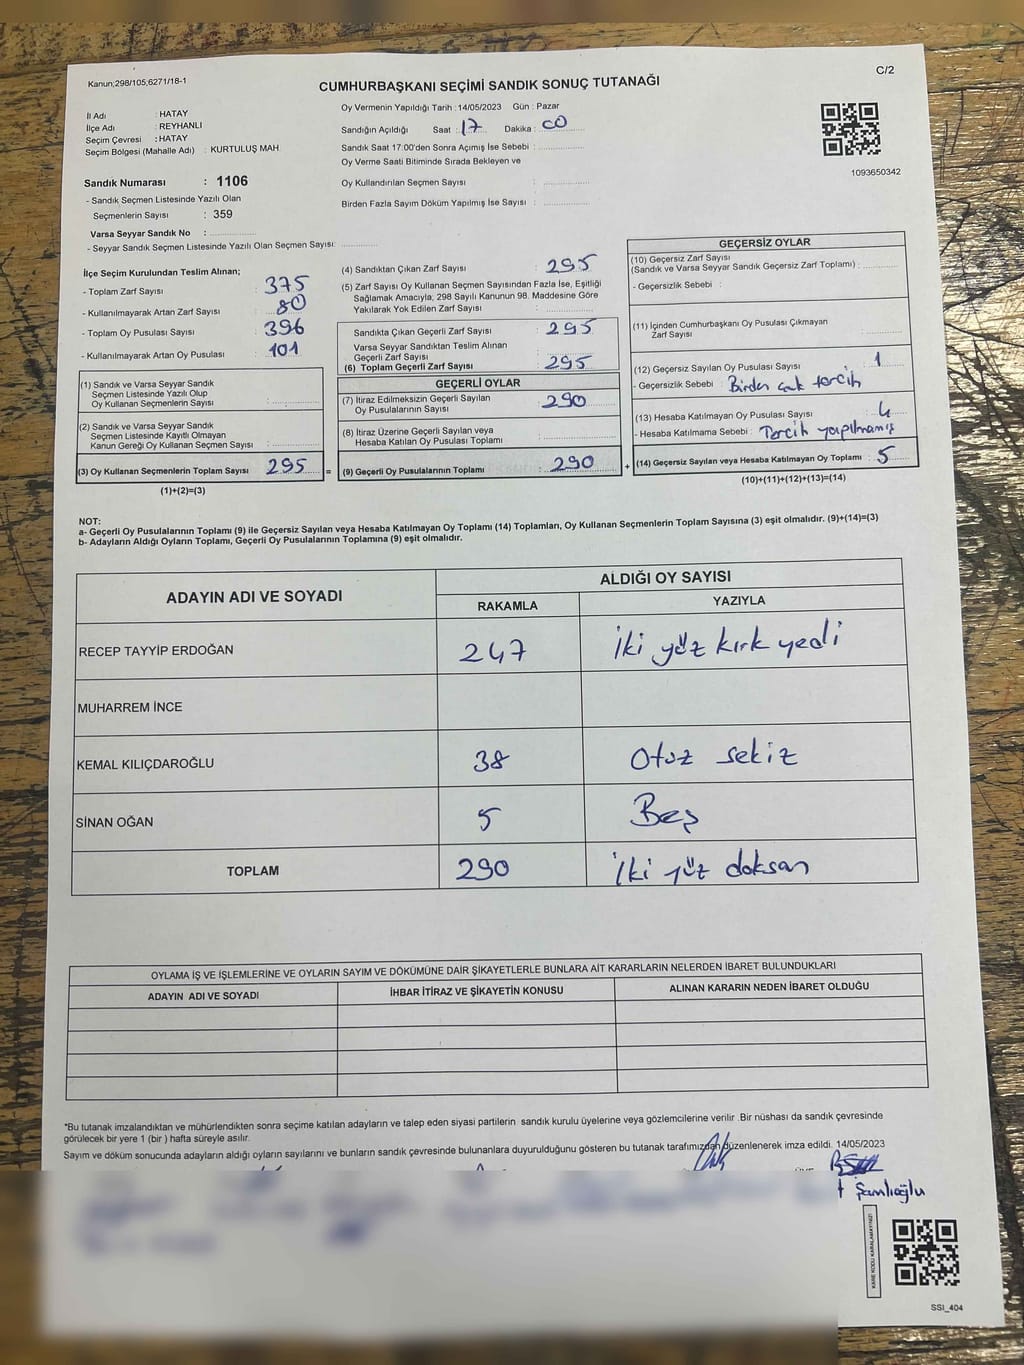 Kanun;298/105,6271/18-1
CUMHURBAŞKANI SEÇİMİ SANDIK SONUÇ TUTANAĞI
C/2
İl Adı : HATAY
İlçe Adı : REYHANLI
Seçim Çevresi : HATAY
Seçim Bölgesi (Mahalle Adı) : KURTULUŞ MAH
Sandık Numarası : 1106
- Sandık Seçmen Listesinde Yazılı Olan
Seçmenlerin Sayısı : 359
Varsa Seyyar Sandık No :
- Seyyar Sandık Seçmen Listesinde Yazılı Olan Seçmen Sayısı:
Oy Vermenin Yapıldığı Tarih : 14/05/2023 Gün : Pazar
Sandığın Açıldığı Saat : 17 Dakika : 00
Sandık Saat 17:00'den Sonra Açımış İse Sebebi :
Oy Verme Saati Bitiminde Sırada Bekleyen ve
Oy Kullandırılan Seçmen Sayısı :
Birden Fazla Sayım Döküm Yapılmış İse Sayısı :
1093650342
İlçe Seçim Kurulundan Teslim Alınan;
- Toplam Zarf Sayısı : 375
- Kullanılmayarak Artan Zarf Sayısı : 80
- Toplam Oy Pusulası Sayısı : 396
- Kullanılmayarak Artan Oy Pusulası : 101
(1) Sandık ve Varsa Seyyar Sandık
Seçmen Listesinde Yazılı Olup
Oy Kullanan Seçmenlerin Sayısı :
(2) Sandık ve Varsa Seyyar Sandık
Seçmen Listesinde Kayıtlı Olmayan
Kanun Gereği Oy Kullanan Seçmen Sayısı :
(3) Oy Kullanan Seçmenlerin Toplam Sayısı 295 =
(1)+(2)=(3)
(4) Sandıktan Çıkan Zarf Sayısı : 295
(5) Zarf Sayısı Oy Kullanan Seçmen Sayısından Fazla İse, Eşitliği
Sağlamak Amacıyla, 298 Sayılı Kanunun 98. Maddesine Göre
Yakılarak Yok Edilen Zarf Sayısı :
Sandıkta Çıkan Geçerli Zarf Sayısı : 295
Varsa Seyyar Sandıktan Teslim Alınan
Geçerli Zarf Sayısı :
(6) Toplam Geçerli Zarf Sayısı 295
GEÇERLİ OYLAR
(7) İtiraz Edilmeksizin Geçerli Sayılan
Oy Pusulalarının Sayısı : 290
(8) İtiraz Üzerine Geçerli Sayılan veya
Hesaba Katılan Oy Pusulası Toplamı :
(9) Geçerli Oy Pusulalarının Toplamı : 290 +
GEÇERSİZ OYLAR
(10) Geçersiz Zarf Sayısı
(Sandık ve Varsa Seyyar Sandık Geçersiz Zarf Toplamı) :
- Geçersizlik Sebebi :
(11) İçinden Cumhurbaşkanı Oy Pusulası Çıkmayan
Zarf Sayısı :
(12) Geçersiz Sayılan Oy Pusulası Sayısı : 1
- Geçersizlik Sebebi : Birden çok tercih
(13) Hesaba Katılmayan Oy Pusulası Sayısı : 4
- Hesaba Katılmama Sebebi : Tercih yapılmamış
(14) Geçersiz Sayılan veya Hesaba Katılmayan Oy Toplamı : 5
(10)+(11)+(12)+(13)=(14)
NOT:
a- Geçerli Oy Pusulalarının Toplamı (9) ile Geçersiz Sayılan veya Hesaba Katılmayan Oy Toplamı (14) Toplamları, Oy Kullanan Seçmenlerin Toplam Sayısına (3) eşit olmalıdır. (9)+(14)=(3)
b- Adayların Aldığı Oyların Toplamı, Geçerli Oy Pusulalarının Toplamına (9) eşit olmalıdır.
ADAYIN ADI VE SOYADI
ALDIĞI OY SAYISI
RAKAMLA YAZIYLA
RECEP TAYYİP ERDOĞAN 247 İki yüz kırk yedi
MUHARREM İNCE
KEMAL KILIÇDAROĞLU 38 Otuz sekiz
SİNAN OĞAN 5 Beş
TOPLAM 290 İki yüz doksan
OYLAMA İŞ VE İŞLEMLERİNE VE OYLARIN SAYIM VE DÖKÜMÜNE DAİR ŞİKAYETLERLE BUNLARA AİT KARARLARIN NELERDEN İBARET BULUNDUKLARI
ADAYIN ADI VE SOYADI İHBAR İTİRAZ VE ŞİKAYETİN KONUSU ALINAN KARARIN NEDEN İBARET OLDUĞU
*Bu tutanak imzalandıktan ve mühürlendikten sonra seçime katılan adayların ve talep eden siyasi partilerin sandık kurulu üyelerine veya gözlemcilerine verilir .Bir nüshası da sandık çevresinde
görülecek bir yere 1 (bir ) hafta süreyle asılır.
Sayım ve döküm sonucunda adayların aldığı oyların sayılarını ve bunların sandık çevresinde bulunanlara duyurulduğunu gösteren bu tutanak tarafımızdan düzenlenerek imza edildi. 14/05/2023
Şanlıoğlu
SSI_404